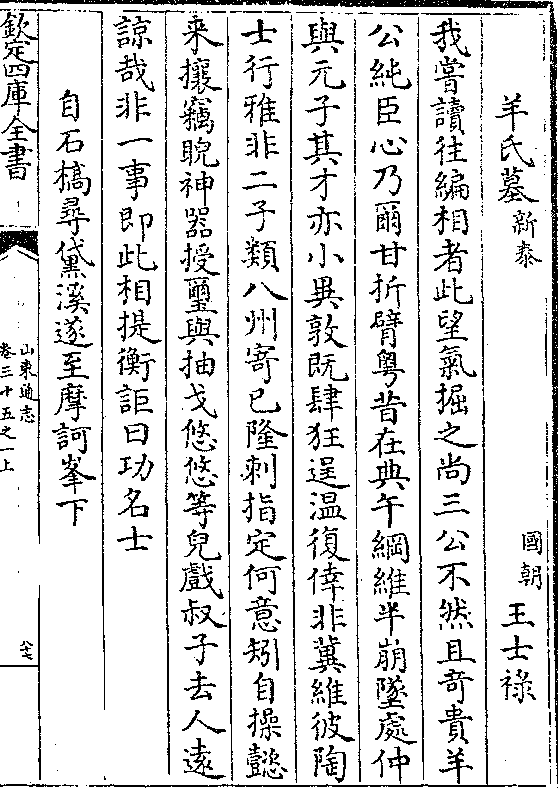 羊氏墓 新泰 國朝 王士祿
我嘗讀往編相者此望氣掘之尚三公不然且竒貴羊
公純臣心乃爾甘折臂粤昔在典午綱維半崩墜處仲
與元子其才亦小異敦既肆狂逞温復倖非冀維彼陶
士行雅非二子類八州寄已隆刺指定何意矧自操懿
来攘竊睨神器授璽與抽戈悠悠等兒戲叔子去人遠
諒哉非一事即此相提衡詎曰功名士
自石橋尋黛溪遂至摩訶峯下
欽定四庫全書
山東通志
卷三十五之一上